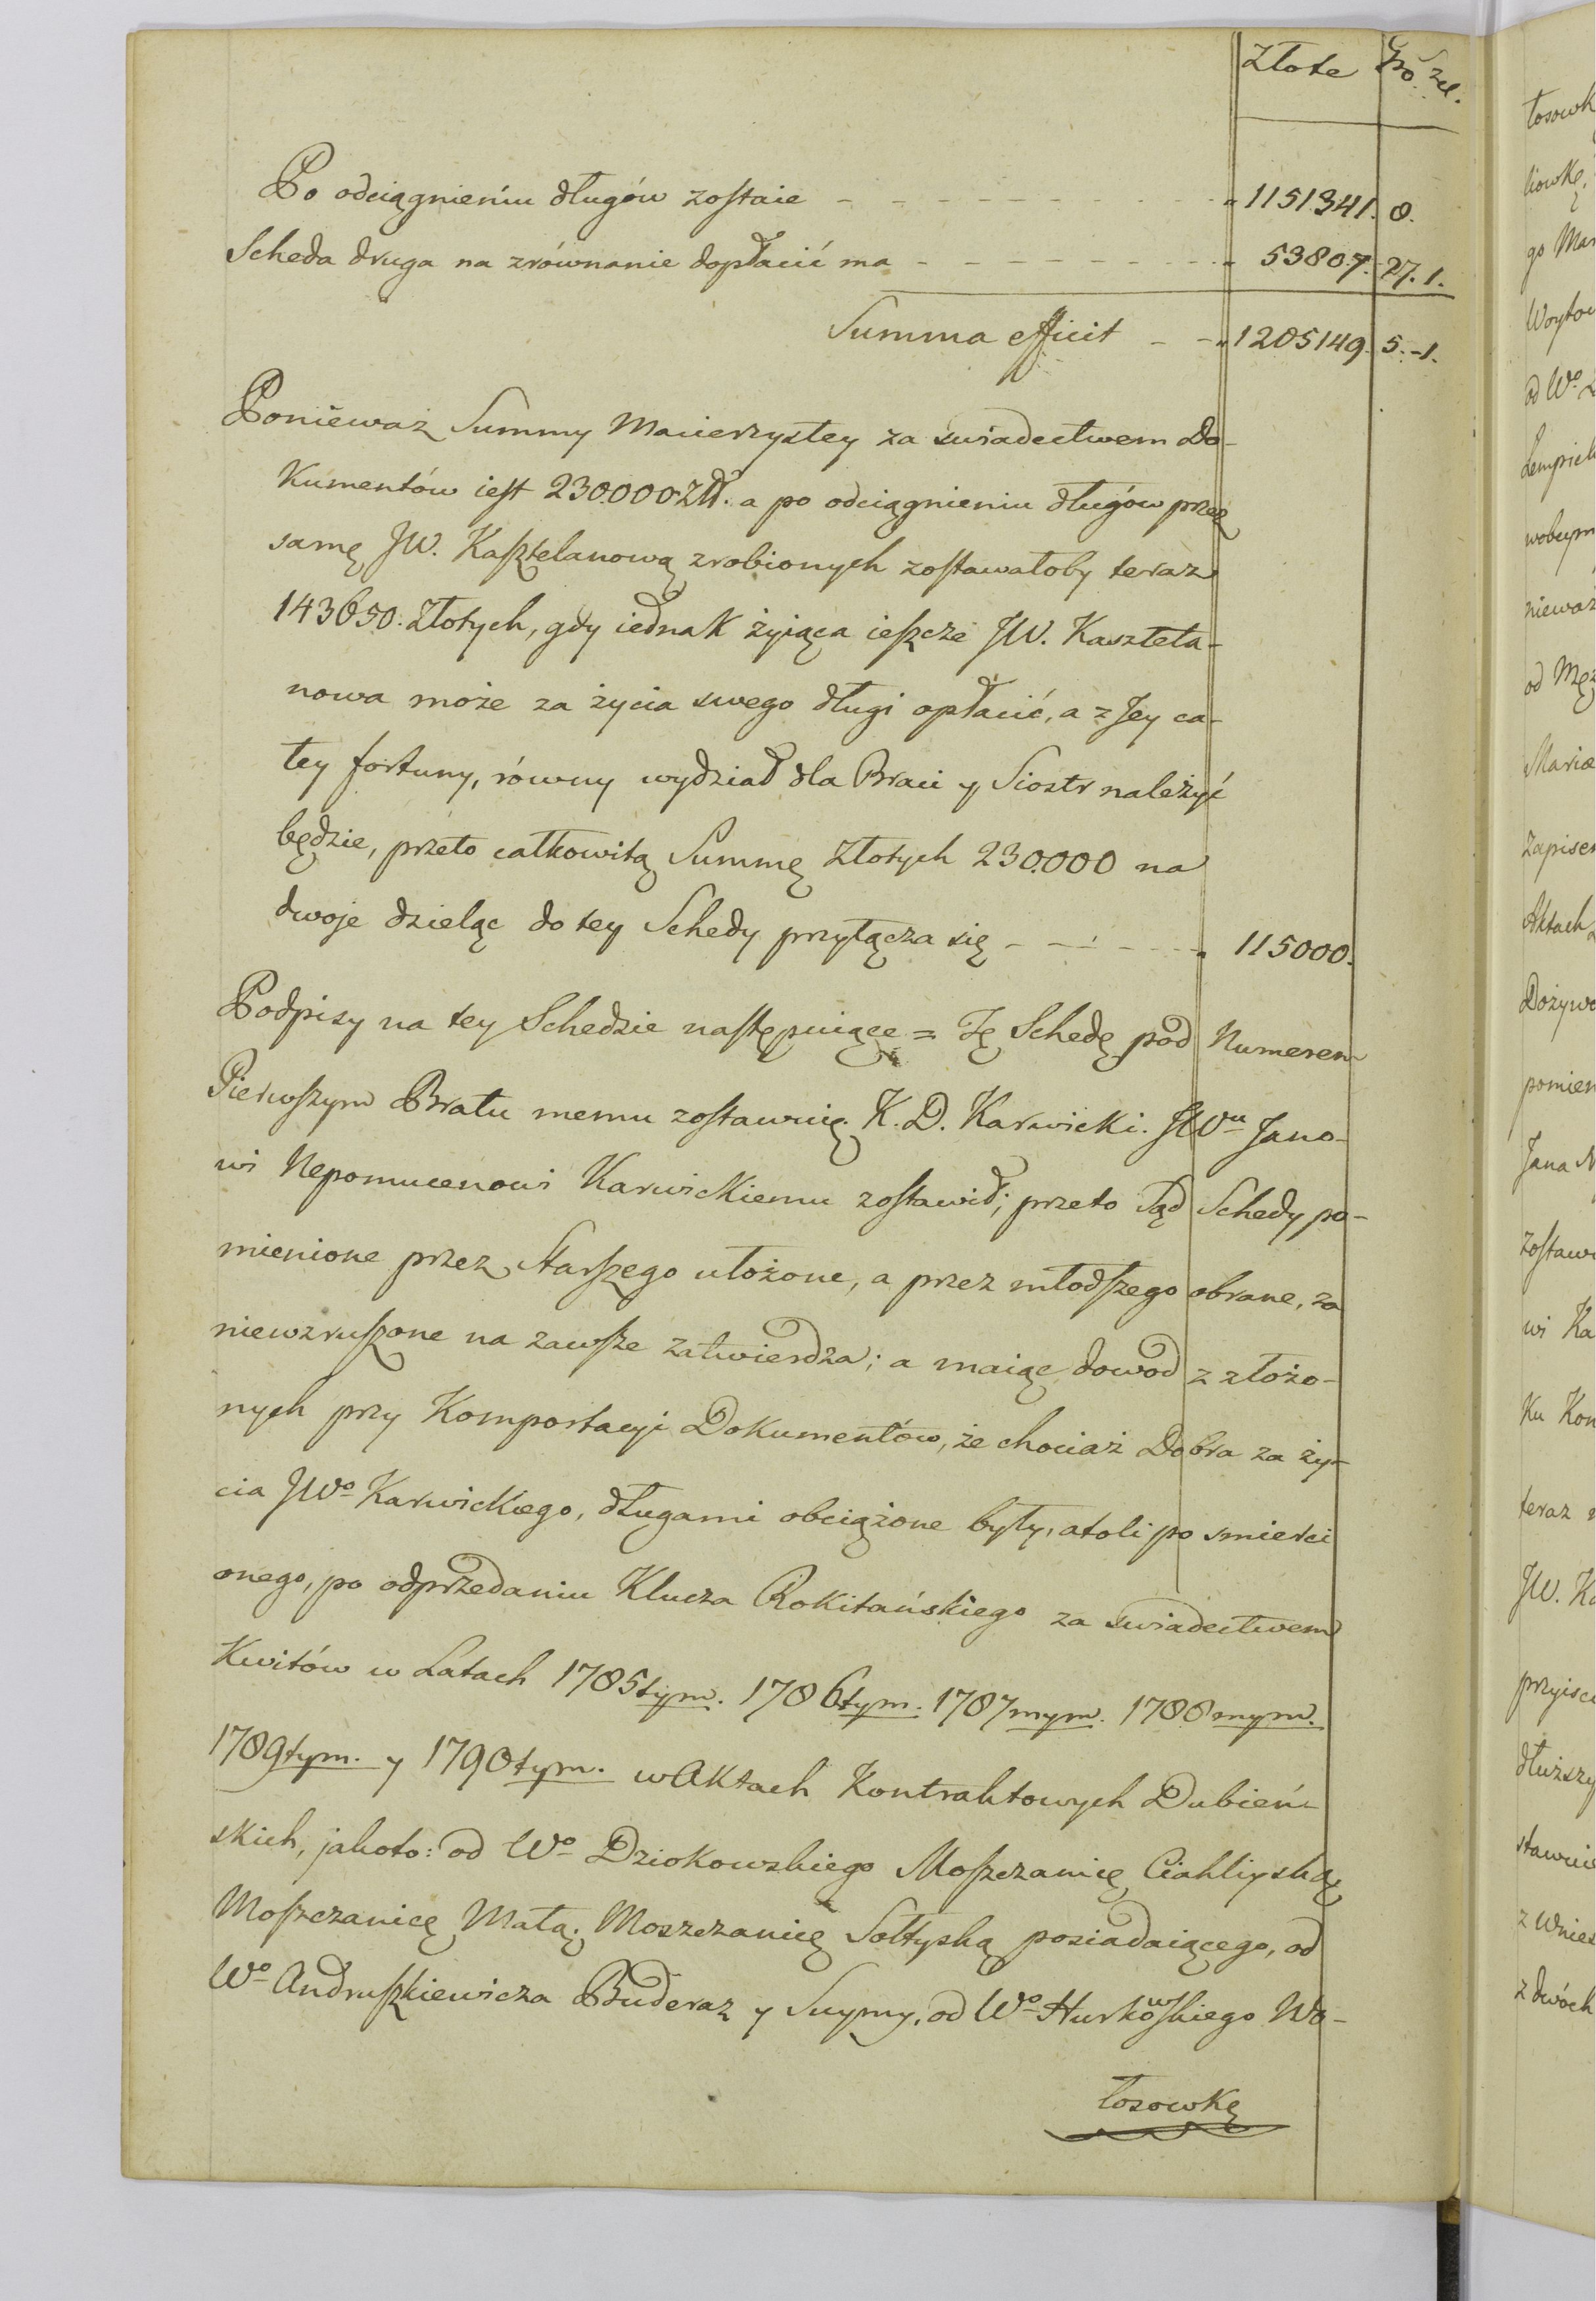 Złote Gro. zel.
Po odciągnieniu długów zostaie - - - - - - - - - " 1151341. 8.
Scheda druga na zrównanie dopłacić ma - - - - - - - - - " 53807. 27. 1.
Summa efficit - - " 1205149. 5. - 1.
Ponieważ Summy Macierzystey za swiadectwem Do-
kumentów iest 230.000 Złł. a po odciągnieniu długów przez
samę JW. Kasztelanową zrobionych zostawałoby teraz
143650. Złotych, gdy iednak żyiąca ieszcze JW. Kasztela-
nowa może za życia swego długi opłacić, a z Jey ca-
łey fortuny, równy wydział dla Braci y Siostr należyć
będzie, przeto całkowitą Summę Złotych 230.000 na
dwoje dzieląc do tey Schedy przyłącza się - - - - - " 115000.
Podpisy na tey Schedzie następuiące = Tę Schedę pod Numerem
Pierwszym Bratu memu zostawuię. K. D. Karwicki. JWu Jano-
wi Nepomucenowi Karwickiemu zostawił; przeto Sąd Schedy po-
mienione przez Starszego ułożone, a przez młodszego obrane, za
niewzruszone na zawsze zatwierdza; a maiąc dowod z złożo-
nych przy Komportacyi Dokumentów, że chociaż Dobra za ży-
cia JWo Karwickiego, długami obciążone były, atoli po smierci
onego, po odprzedaniu Klucza Rokitańskiego za swiadectwem
Kwitów w Latach 1785tym. 1786tym. 1787mym. 1788mym.
1789tym. y 1790tym. w Aktach Kontraktowych Dubień-
skich, jakoto: od Wo Dziokowskiego Moszczanicę Ciahliyską
Moszczanicę Małą, Moszczanicę Sołtyską posiadaiącego, od
Wo Andruszkiewicza Buderaz y Suymy, od Wo Hurkowskiego Wo-
łosowkę